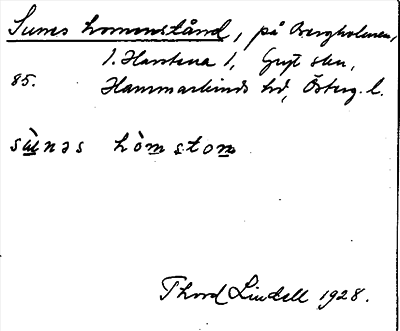 Sunes hommstånd, på Bergholmen,
1. Harstena 1, Gryt skn,
85. Hammarkinds hd, Österg. l.
Thord Lindell 1928.